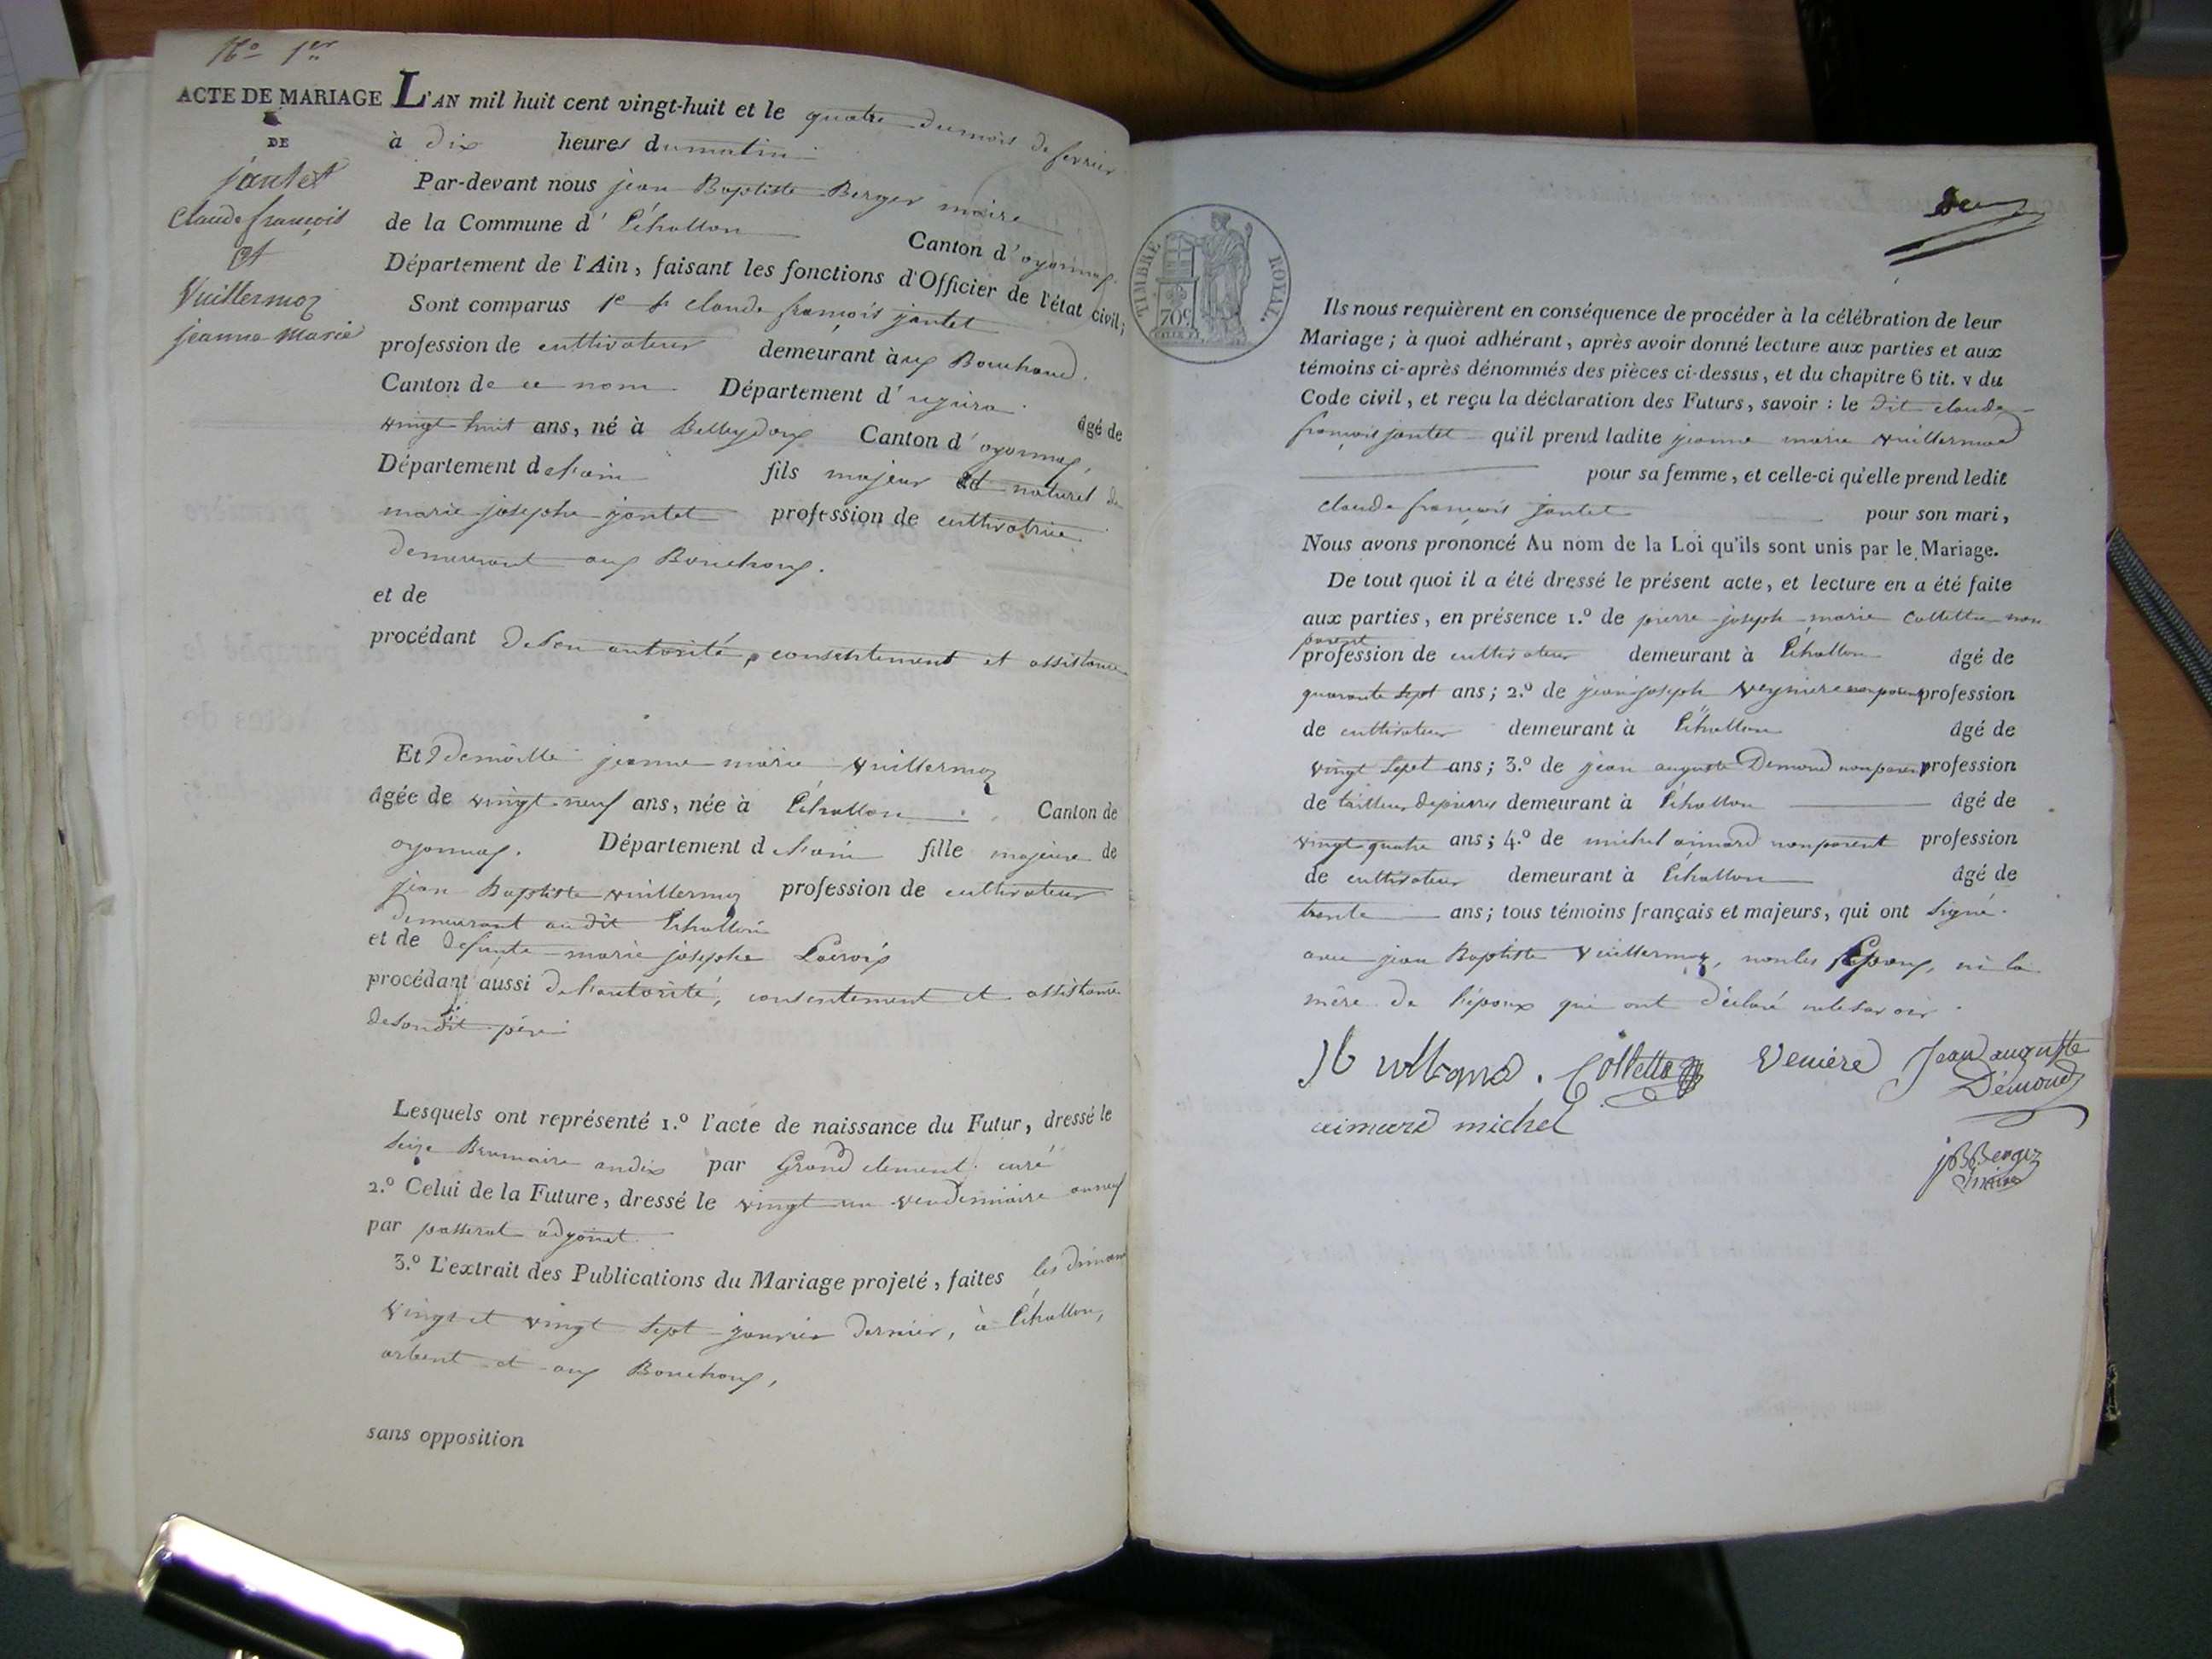 No 1er
ACTE DE MARIAGE
DE
jantet
Claude françois
Et
Vuillermoz
jeanne Marie
L'AN mil huit cent vingt-huit et le quatre du mois de fevrier
à dix heures du matin
Par-devant nous jean Baptiste Berger maire
de la Commune d'Échallon Canton d'oyonnax
Département de l'Ain, faisant les fonctions d'Officier de l'état civil;
Sont comparus 1e Sr claude françois jantet
profession de cultivateur demeurant aux Bouchoux
Canton de ce nom Département d'ujura âgé de
vingt huit ans, né à Belleydoux Canton d'oyonnax,
Département de l'ain fils majeur et naturel de
marie josephe jantet profession de cultivatrice
demeurant aux Bouchoux.
et de
procédant de son autorité, consentement et assistance
Et 2 demoiselle jeanne marie Vuillermoz
âgée de vingt neuf ans, née à Échallon Canton de
oyonnax. Département de l'ain fille majeure de
jean Baptiste vuillermoz profession de cultivateur
demeurant audit Échallon
et de defunte marie josephe Lacroix
procédant aussi de l'autorité, consentement et assistance
de son dit père
Lesquels ont représenté 1.º l'acte de naissance du Futur, dressé le
Seize Brumaire an dix par Grand clement curé
2.º Celui de la Future, dressé le vingt un vendemiaire an neuf
par passerat adjoint
3.º L'extrait des Publications du Mariage projeté, faites les diman
vingt et vingt sept janvier dernier, à Échallon,
arbent et aux Bouchoux,
sans opposition
TIMBRE ROYAL.
70c
Ils nous requièrent en conséquence de procéder à la célébration de leur
Mariage; à quoi adhérant, après avoir donné lecture aux parties et aux
témoins ci-après dénommés des pièces ci-dessus, et du chapitre 6 tit. v du
Code civil, et reçu la déclaration des Futurs, savoir : le dit claude
françois jantet qu'il prend ladite jeanne marie vuillermoz
pour sa femme, et celle-ci qu'elle prend ledit
claude françois jantet pour son mari,
Nous avons prononcé Au nom de la Loi qu'ils sont unis par le Mariage.
De tout quoi il a été dressé le présent acte, et lecture en a été faite
aux parties, en présence 1.º de pierre joseph marie Collettaz non
parent
profession de cultivateur demeurant à Échallon âgé de
quarante sept ans; 2.º de jean joseph veyniere non parent profession
de cultivateur demeurant à Échallon âgé de
vingt sept ans; 3.º de jean auguste Demond non parent profession
de tailleur de pierres demeurant à Échallon âgé de
vingt quatre ans; 4.º de michel aimard non parent profession
de cultivateur demeurant à Échallon âgé de
trente ans; tous témoins français et majeurs, qui ont Signé
avec jean Baptiste Vuillermoz, non les Epoux, ni la
mère de l'époux qui ont déclaré ne le savoir.
Colletta Veniere Jean auguste
Démond
aimard michel
jB Berger
maire